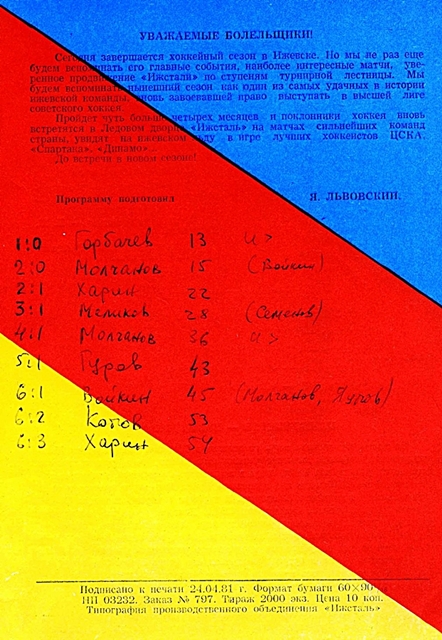 УВАЖАЕМЫЕ БОЛЕЛЬЩИКИ!
Сегодня завершается хоккейный сезон в Ижевске. Но мы не раз еще
будем вспоминать его главные события, наиболее интересные матчи, уве-
ренное продвижение «Ижстали» по ступеням турнирной лестницы. Мы
будем вспоминать нынешний сезон как один из самых удачных в истории
ижевской команды, вновь завоевавшей право выступать в высшей лиге
советского хоккея.
Пройдет чуть больше четырех месяцев и поклонники хоккея вновь
встретятся в Ледовом дворце «Ижсталь» на матчах сильнейших команд
страны, увидят на ижевском льду в игре лучших хоккеистов ЦСКА,
«Спартака», «Динамо»...
До встречи в новом сезоне!
Программу подготовил Я. ЛЬВОВСКИЙ.
1:0 Горбачев 13 и >
2:0 Молчанов 15 (Войкин)
2:1 Харин 22
3:1 Меликов 28 (Семенов)
4:1 Молчанов 36 и >
5:1 Гуров 43
6:1 Войкин 45 (Молчанов, )
6:2 Котов 53
6:3 Харин 54
Подписано к печати 24.04.81 г. Формат бумаги 60×90
НП 03232. Заказ № 797. Тираж 2000 экз. Цена 10 коп.
Типография производственного объединения «Ижсталь»